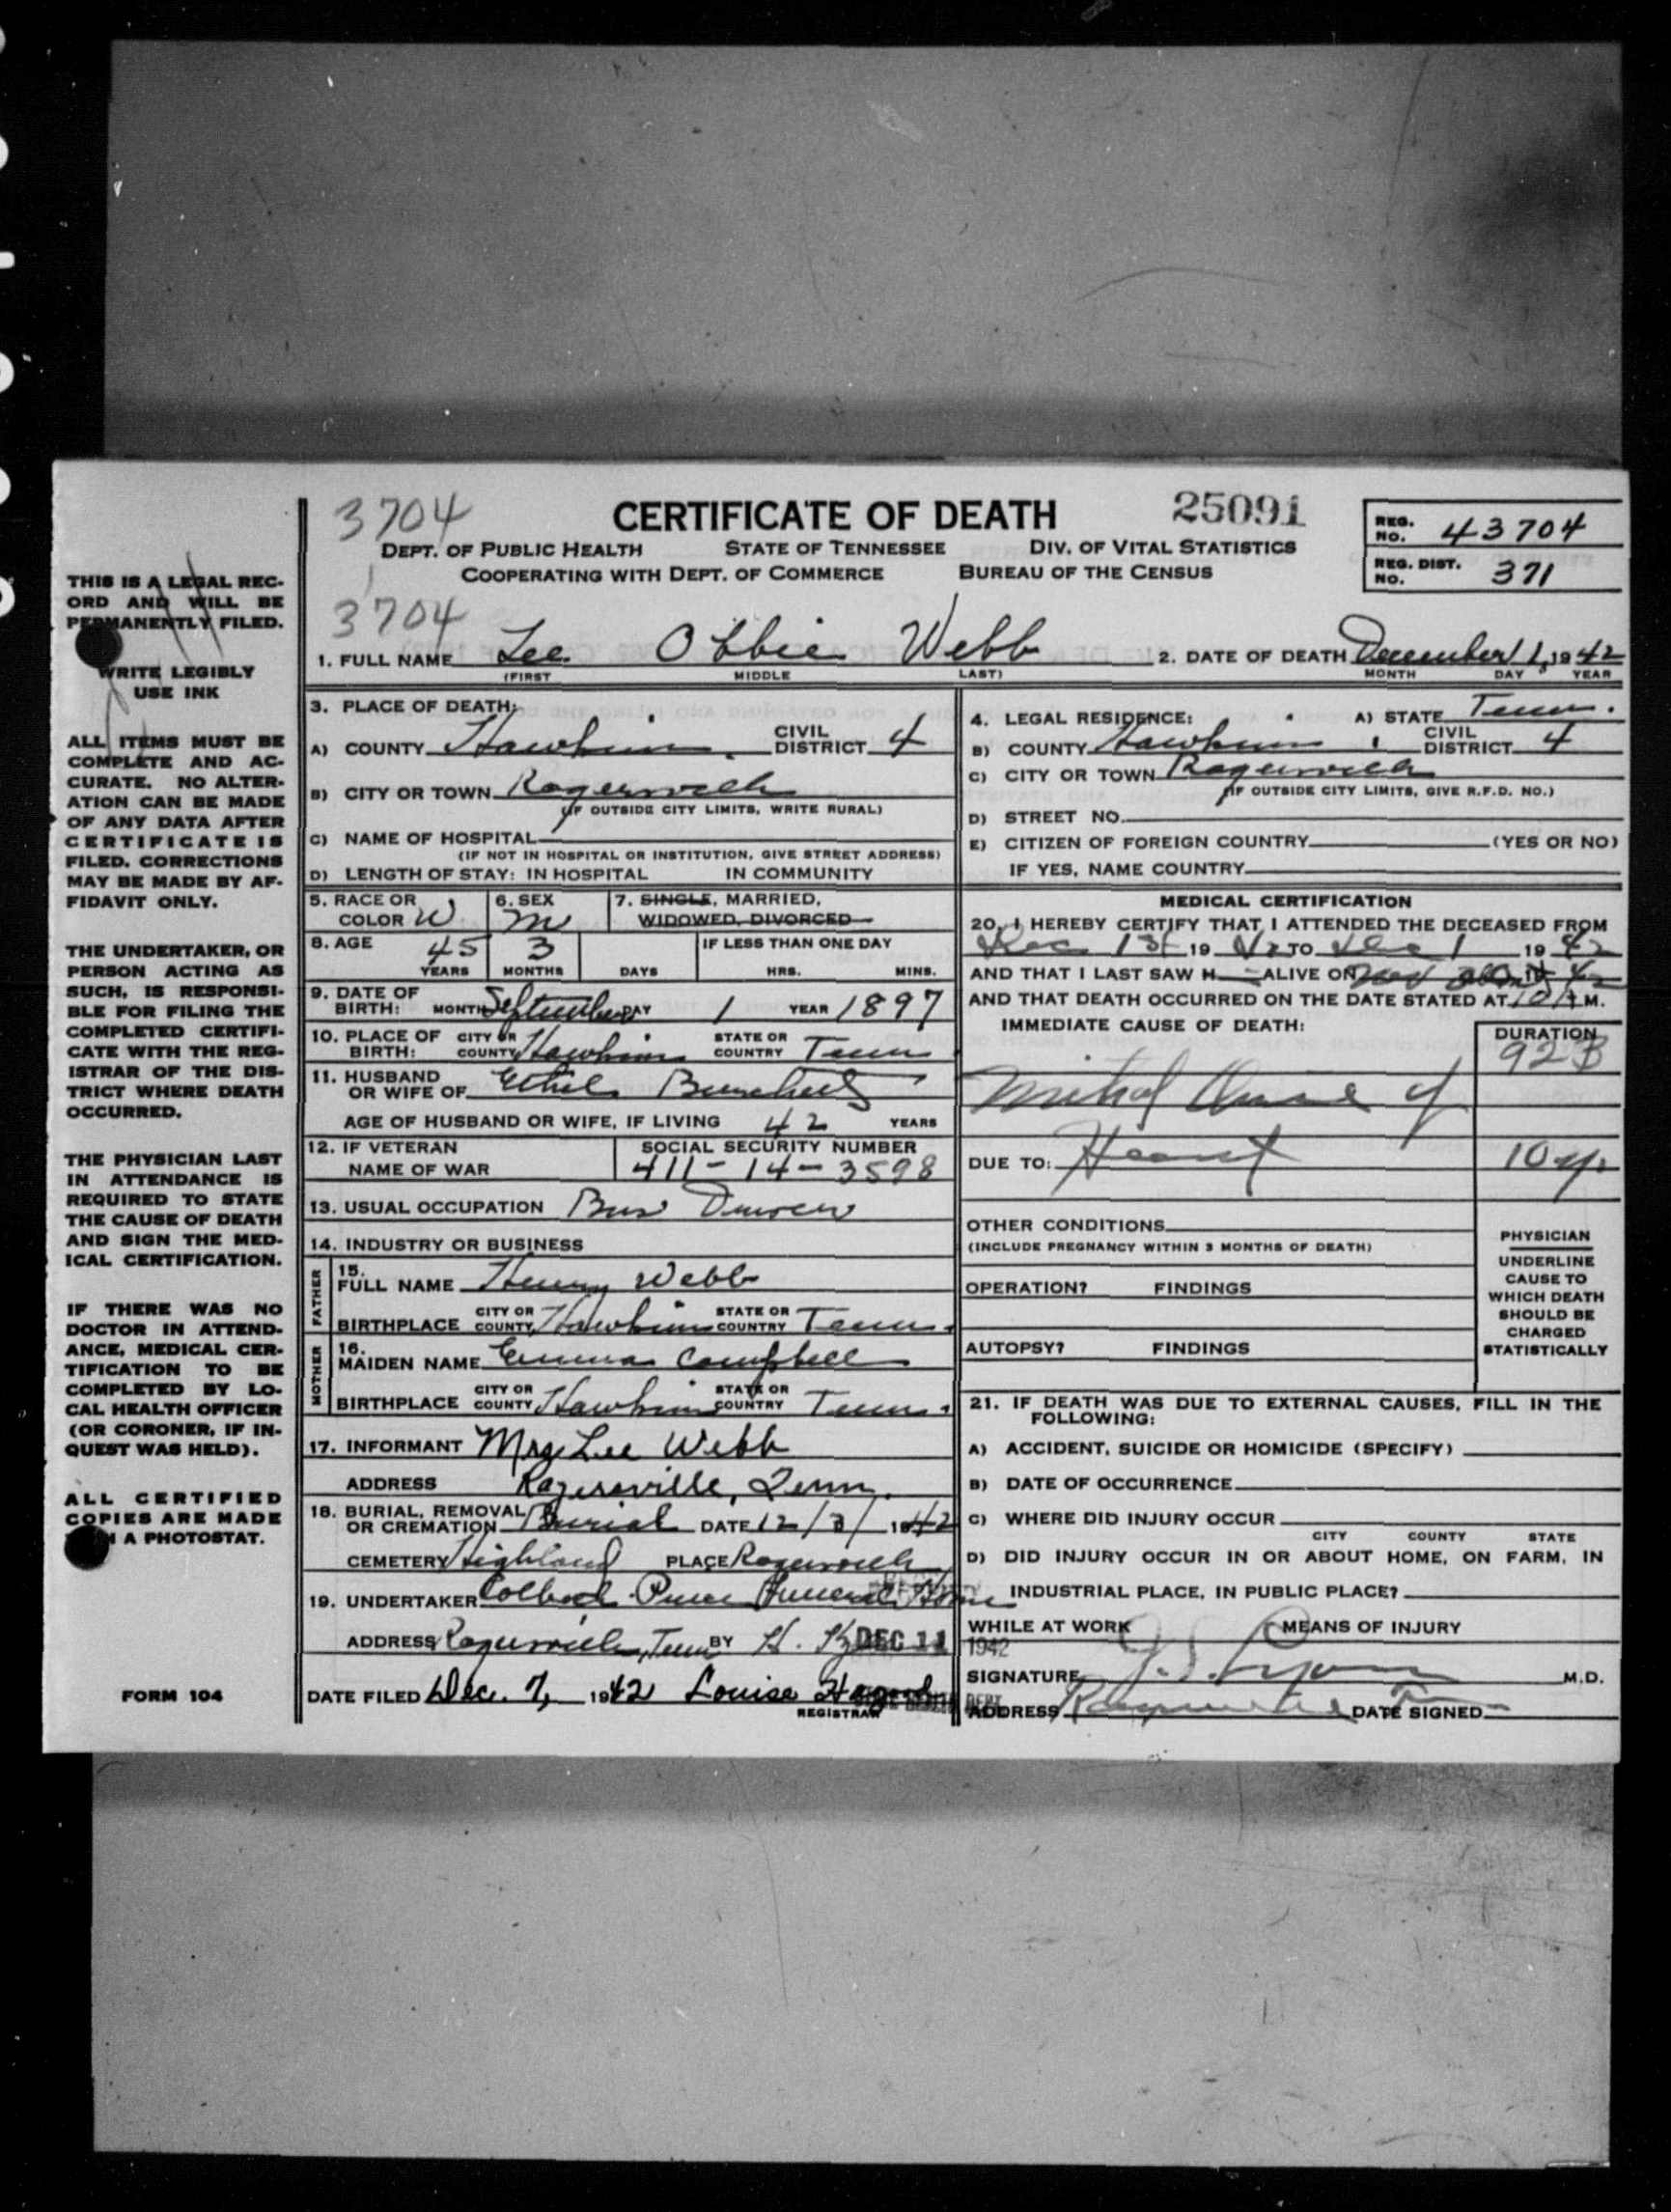 3704
CERTIFICATE OF DEATH
25091
REG. NO. 43704
DEPT. OF PUBLIC HEALTH STATE OF TENNESSEE DIV. OF VITAL STATISTICS
COOPERATING WITH DEPT. OF COMMERCE BUREAU OF THE CENSUS
REG. DIST. NO. 371
3704
1. FULL NAME Lee Obbie Webb
(FIRST MIDDLE LAST)
2. DATE OF DEATH December 1, 1942
MONTH DAY YEAR
THIS IS A LEGAL REC-
ORD AND WILL BE
PERMANENTLY FILED.
WRITE LEGIBLY
USE INK
ALL ITEMS MUST BE
COMPLETE AND AC-
CURATE. NO ALTER-
ATION CAN BE MADE
OF ANY DATA AFTER
CERTIFICATE IS
FILED. CORRECTIONS
MAY BE MADE BY AF-
FIDAVIT ONLY.
THE UNDERTAKER, OR
PERSON ACTING AS
SUCH, IS RESPONSI-
BLE FOR FILING THE
COMPLETED CERTIFI-
CATE WITH THE REG-
ISTRAR OF THE DIS-
TRICT WHERE DEATH
OCCURRED.
THE PHYSICIAN LAST
IN ATTENDANCE IS
REQUIRED TO STATE
THE CAUSE OF DEATH
AND SIGN THE MED-
ICAL CERTIFICATION.
IF THERE WAS NO
DOCTOR IN ATTEND-
ANCE, MEDICAL CER-
TIFICATION TO BE
COMPLETED BY LO-
CAL HEALTH OFFICER
(OR CORONER, IF IN-
QUEST WAS HELD).
ALL CERTIFIED
COPIES ARE MADE
A PHOTOSTAT.
FORM 104
3. PLACE OF DEATH:
A) COUNTY Hawkins CIVIL DISTRICT 4
B) CITY OR TOWN Rogersville
(IF OUTSIDE CITY LIMITS, WRITE RURAL)
C) NAME OF HOSPITAL
(IF NOT IN HOSPITAL OR INSTITUTION, GIVE STREET ADDRESS)
D) LENGTH OF STAY: IN HOSPITAL IN COMMUNITY
5. RACE OR COLOR W 6. SEX M 7. SINGLE, MARRIED,
WIDOWED, DIVORCED
8. AGE 45 YEARS 3 MONTHS DAYS IF LESS THAN ONE DAY HRS. MINS.
9. DATE OF BIRTH: MONTH September DAY 1 YEAR 1897
10. PLACE OF BIRTH: CITY OR COUNTY Hawkins STATE OR COUNTRY Tenn
11. HUSBAND OR WIFE OF Ethel
AGE OF HUSBAND OR WIFE, IF LIVING 42 YEARS
12. IF VETERAN NAME OF WAR SOCIAL SECURITY NUMBER 411-14-3598
13. USUAL OCCUPATION Bus
14. INDUSTRY OR BUSINESS
FATHER
15. FULL NAME Henry Webb
BIRTHPLACE CITY OR COUNTY Hawkins STATE OR COUNTRY Tenn.
MOTHER
16. MAIDEN NAME Emma Campbell
BIRTHPLACE CITY OR COUNTY Hawkins STATE OR COUNTRY Tenn.
17. INFORMANT Mrs Lee Webb
ADDRESS Rogersville, Tenn.
18. BURIAL, REMOVAL OR CREMATION Burial DATE 12/3/1942
CEMETERY Highland PLACE Rogersville
19. UNDERTAKER Price Funeral Home
ADDRESS Rogersville, Tenn BY H. DEC 11 1942
DATE FILED Dec. 7, 1942 Louise
REGISTRAR
4. LEGAL RESIDENCE: A) STATE Tenn.
B) COUNTY Hawkins CIVIL DISTRICT 4
C) CITY OR TOWN Rogersville
(IF OUTSIDE CITY LIMITS, GIVE R.F.D. NO.)
D) STREET NO.
E) CITIZEN OF FOREIGN COUNTRY (YES OR NO)
IF YES, NAME COUNTRY
MEDICAL CERTIFICATION
20. I HEREBY CERTIFY THAT I ATTENDED THE DECEASED FROM
Dec 1st 1942 TO Dec 1 1942
AND THAT I LAST SAW H ALIVE ON 42
AND THAT DEATH OCCURRED ON THE DATE STATED AT 10 A M.
IMMEDIATE CAUSE OF DEATH: DURATION
92B
Mitral of
DUE TO: Heart 10 yr
OTHER CONDITIONS
(INCLUDE PREGNANCY WITHIN 3 MONTHS OF DEATH)
OPERATION? FINDINGS
AUTOPSY? FINDINGS
PHYSICIAN
UNDERLINE
CAUSE TO
WHICH DEATH
SHOULD BE
CHARGED
STATISTICALLY
21. IF DEATH WAS DUE TO EXTERNAL CAUSES, FILL IN THE
FOLLOWING:
A) ACCIDENT, SUICIDE OR HOMICIDE (SPECIFY)
B) DATE OF OCCURRENCE
C) WHERE DID INJURY OCCUR
CITY COUNTY STATE
D) DID INJURY OCCUR IN OR ABOUT HOME, ON FARM, IN
INDUSTRIAL PLACE, IN PUBLIC PLACE?
WHILE AT WORK MEANS OF INJURY
SIGNATURE J. S. Lyons M.D.
ADDRESS Rogersville DATE SIGNED